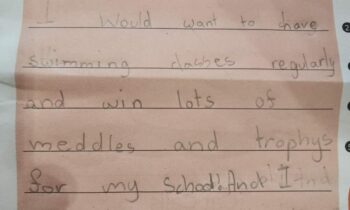 I Would want to have
swimming clashes regularly
and win lots of
meddles and trophys
for my School. And I